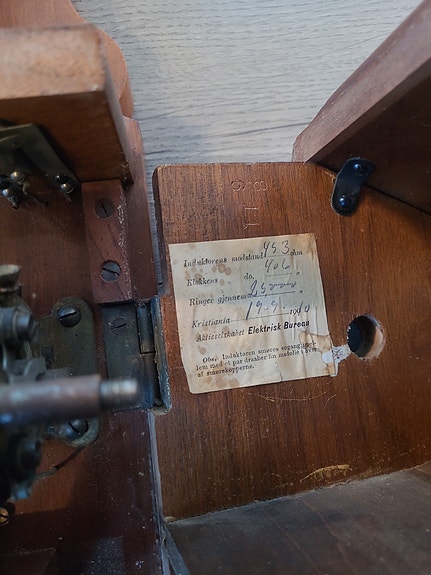 918
11
Induktorens modstand 453 ohm
Klokkens do. 406
Ringer gjennem 25000
Kristiania 19.9. 1910
Aktieselskabet Elektrisk Bureau
Obs. Induktoren smøres engang
lem med et par draaber fin
af smørekopperne.